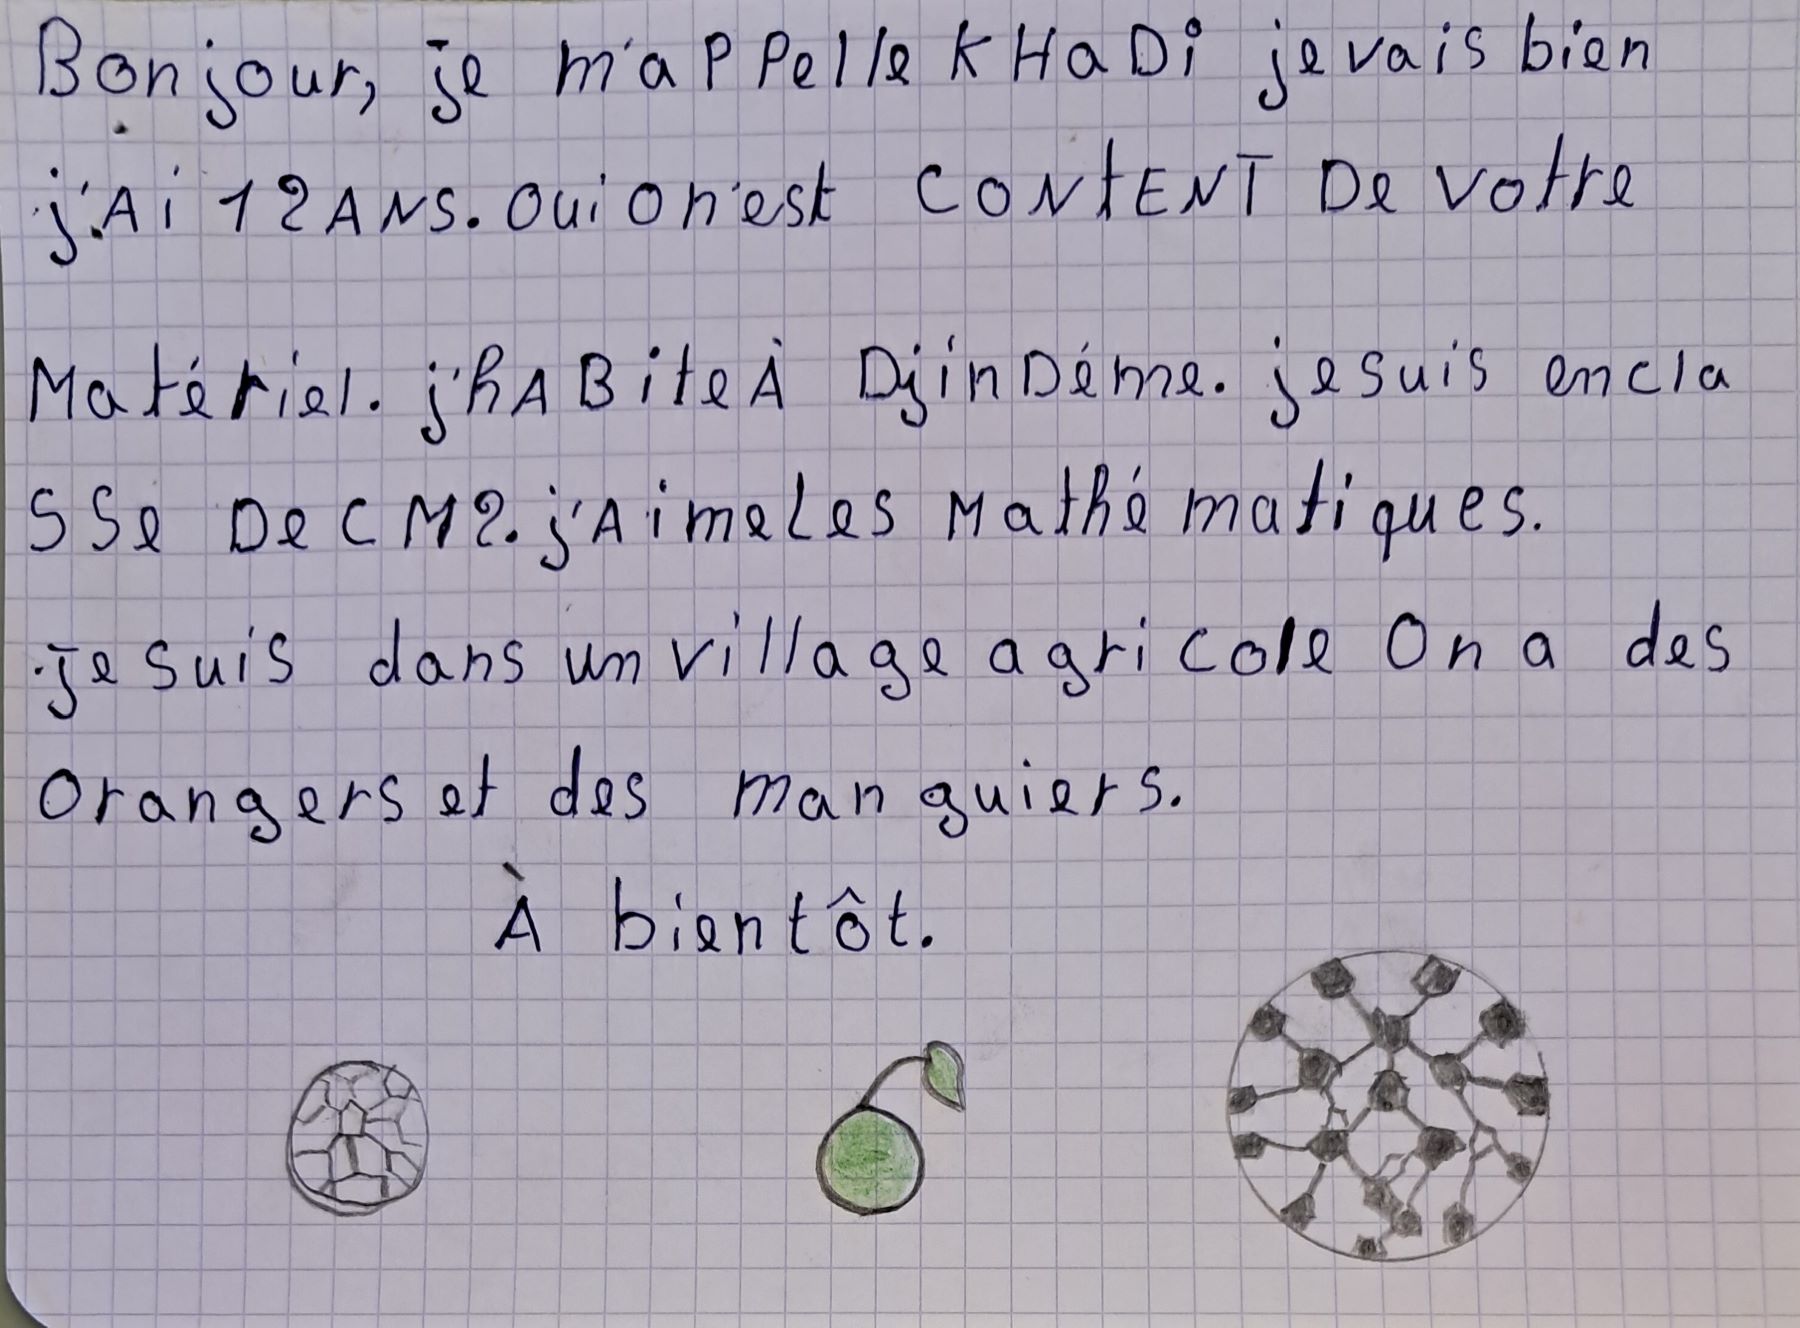 Bonjour, je m'aPPelle KHaDi je vais bien
j'Ai 12 ANS. Oui on'est CONtENT De votre
Matériel. j'hABite À DjinDéme. je suis en cla
SSe De CM2. j'Aime Les Mathématiques.
je suis dans un village agricole On a des
Orangers et des manguiers.
À bientôt.